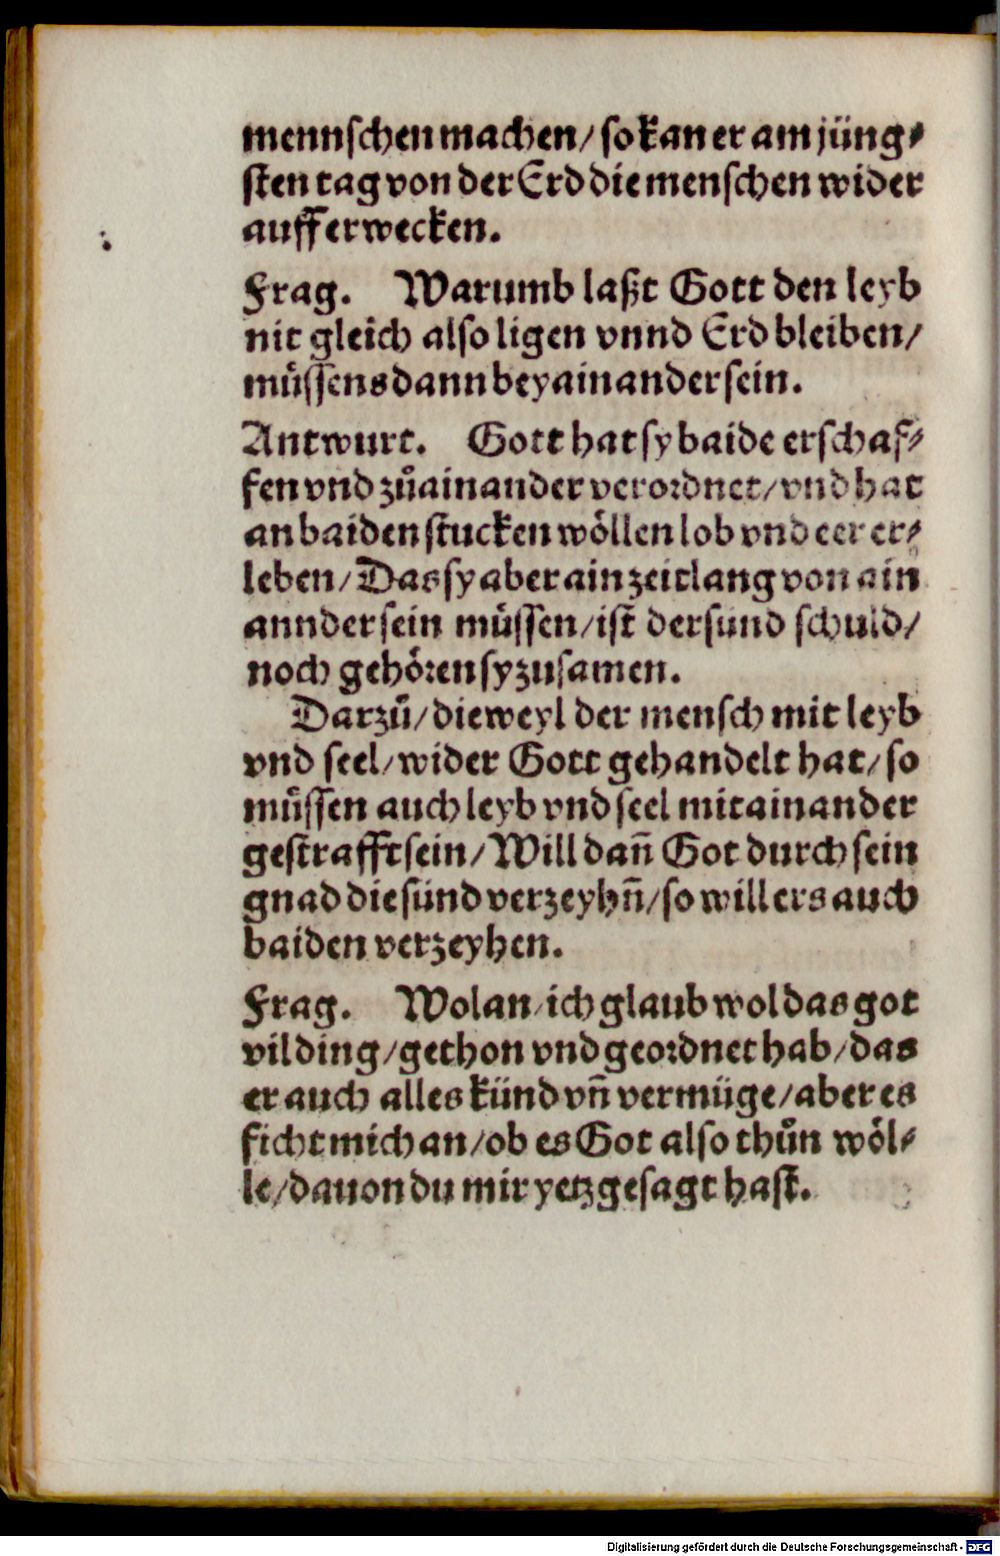 mennschen machen/ so kan er am jüng⸗
sten tag von der Erd die menschen wider
aufferwecken.
Frag. Warumb laßt Gott den leyb
nit gleich also ligen vnnd Erd bleiben/
muͤssens dann bey ainander sein.
Antwurt. Gott hat sy baide erschaf⸗
fen vnd zuͦainander verordnet/ vnd hat
an baiden stucken woͤllen lob vnd eer er⸗
leben/ Das sy aber ain zeitlang von ain
annder sein muͤssen/ ist der sünd schuld/
noch gehoͤren sy zusamen.
Darzuͦ/ dieweyl der mensch mit leyb
vnd seel/ wider Gott gehandelt hat/ so
muͤssen auch leyb vnd seel mit ainander
gestrafft sein/ Will dañ Got durch sein
gnad die sünd verzeyhñ/ so will ers auch
baiden verzeyhen.
Frag. Wolan/ ich glaub wol das got
vil ding/ gethon vnd geordnet hab/ das
er auch alles künd vñ vermüge/ aber es
ficht mich an/ ob es Got also thuͦn woͤl⸗
le/ dauon du mir yetz gesagt hast.
Digitalisierung gefördert durch die Deutsche Forschungsgemeinschaft - DFG